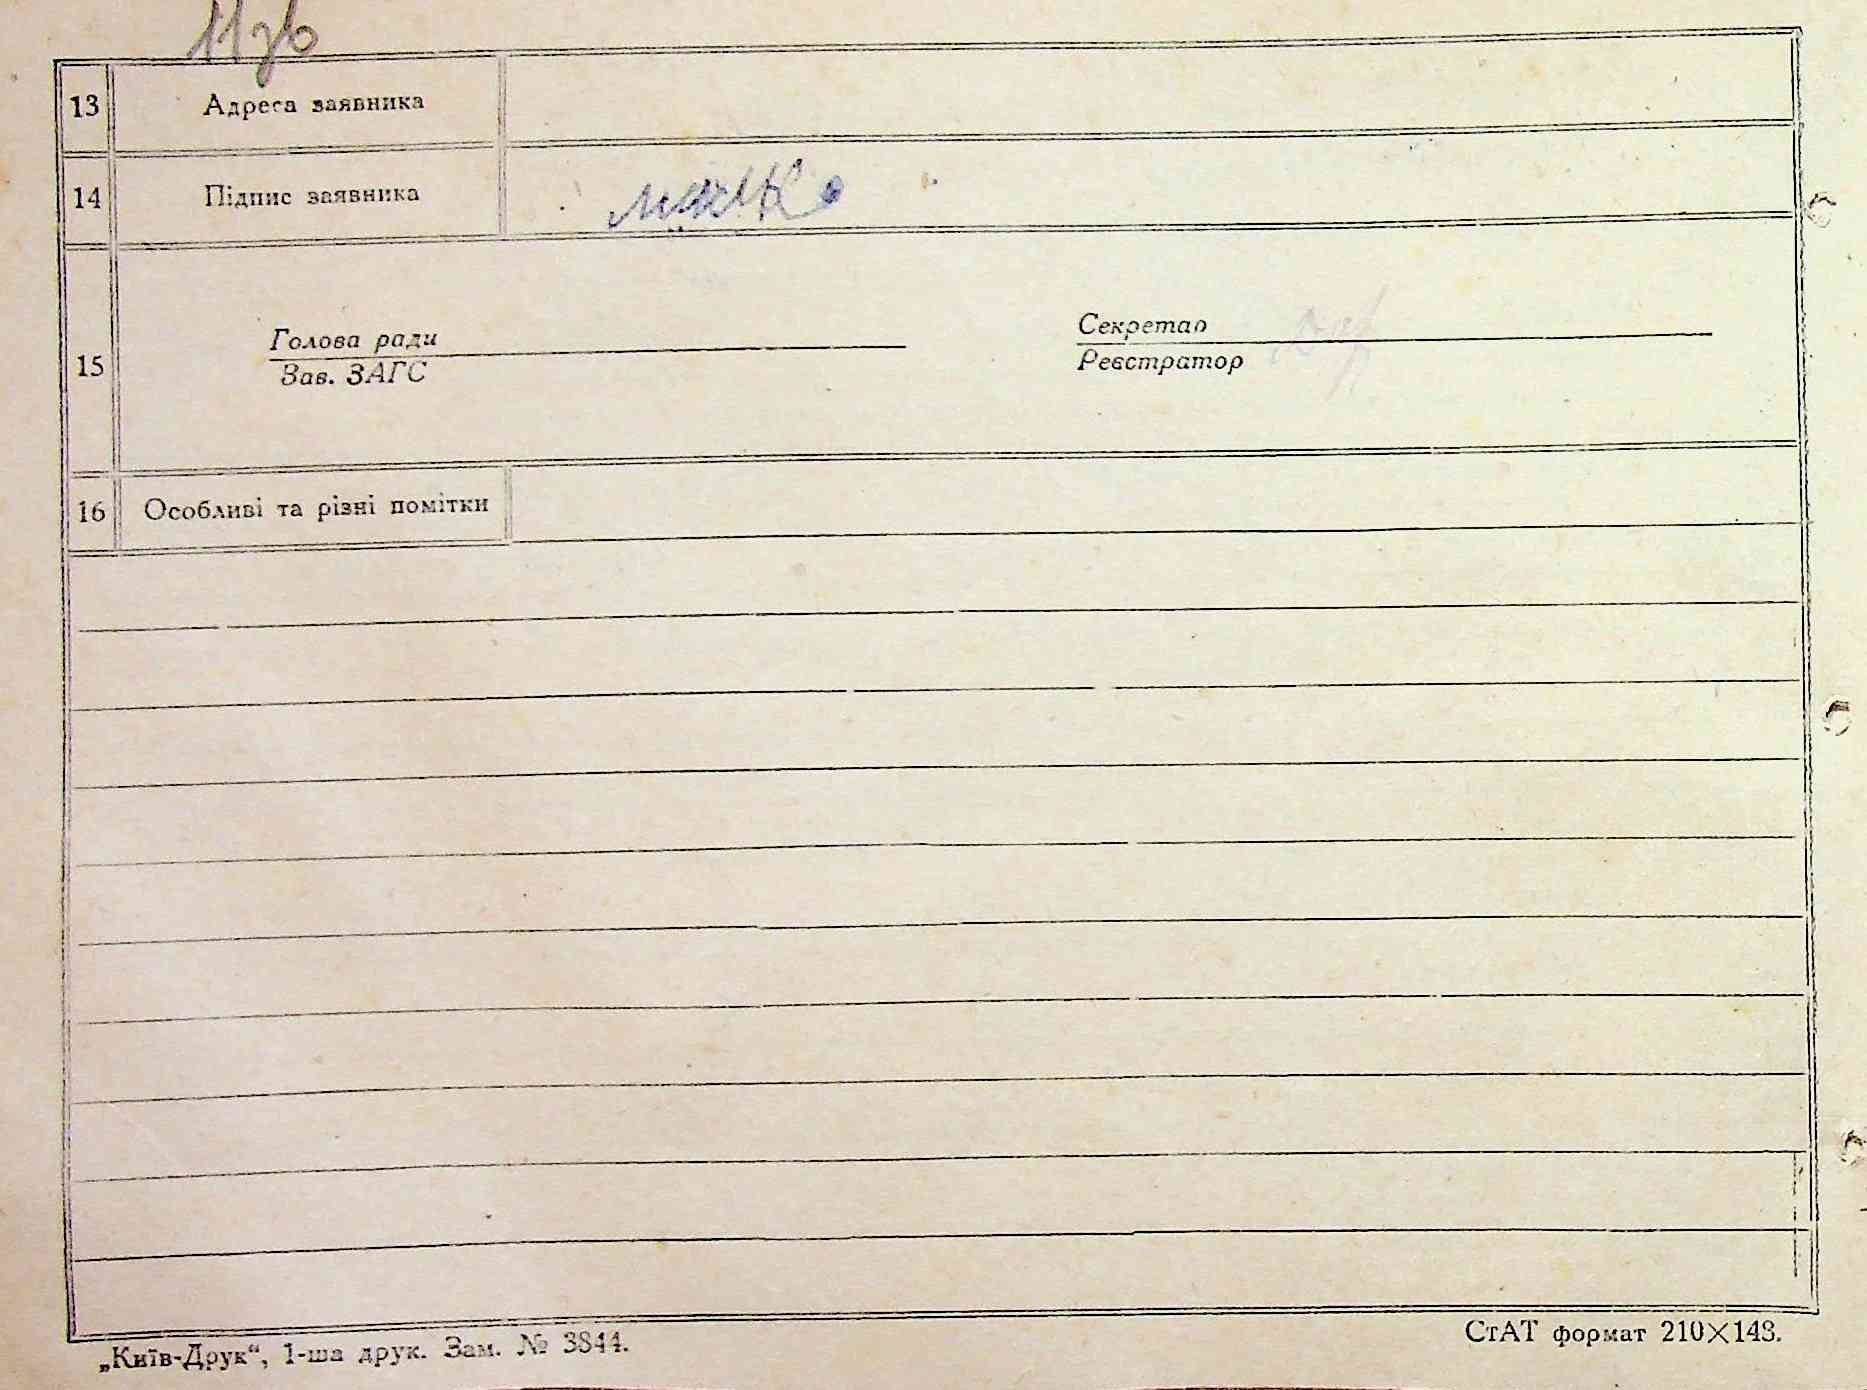 13 Адреса заявника
14 Підпис заявника
Голова ради Секретар
15 Зав. ЗАГС Реєстратор
16 Особливі та різні помітки
„Київ-Друк“, 1-ша друк. Зам. № 3844. СтАТ формат 210×143.